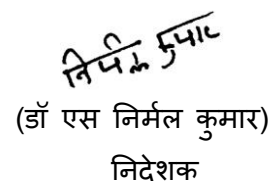 निर्मल कुमार
(डॉ एस निर्मल कुमार)
निदेशक